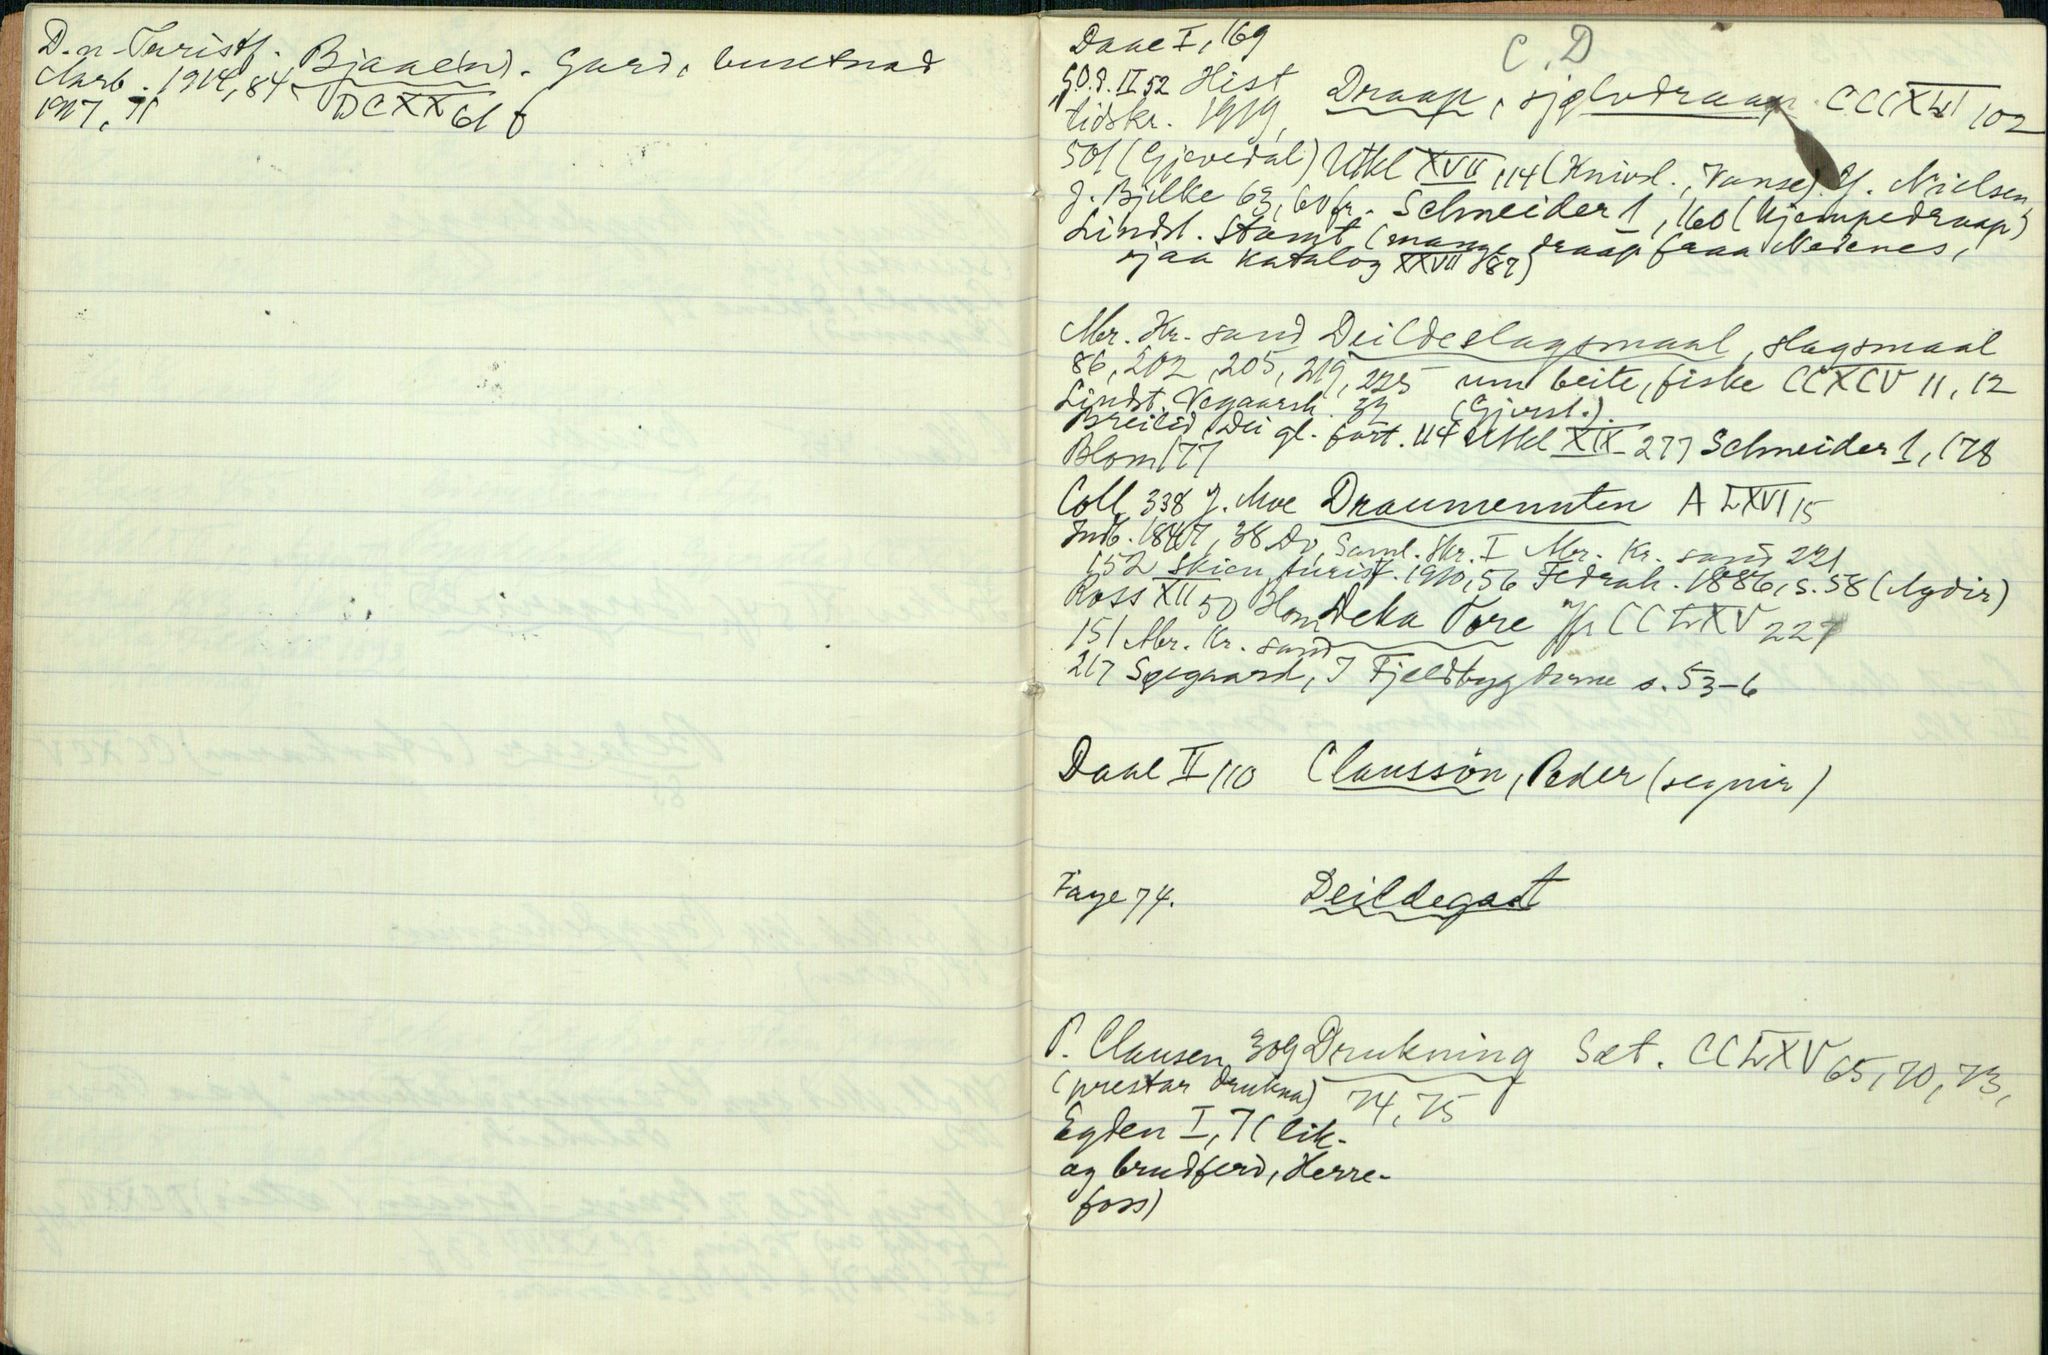 D. n. Turistf. Bjaae(n). Gard, busetnad
Aarb. 1914, 84,
1927, 71 DCXX 61 f
C, D
Daae I, 169
G.O.d. II 52 Hist Draap, sjølvdraap CCCXLI 102
tidskr. 1919,
501 (Gjevedal) Utkl XVII 114 (Knivsl., Vanse) Y. Nielsen,
J. Bjelke 63, 60 fr. Schneider 1, 160 (Kjempedraap)
Lindst. Stamt (mange draap fraa Nedenes,
sjaa katalog XXVII 87)
Mbr. Kr. sand Deildeslagsmaal, slagsmaal
86, 202, 205, 219, 225 um beite, fiske CCXCV 11, 12
Lindst. Vegaarsh. 39 (Gjerst.).
Breilid, Dei gl. fort. 114 Utkl XIX 277 Schneider 1, 178
Blom 177
Coll. 338 J. Moe Draumennten A LXVI 15
Indb. 1847, 38 Do, Saml. Skr. I Mbr. Kr. sand 221
152 Skien turistf. 1910, 56 Fedrah. 1886, s. 58 (Agdir)
Ross XII 50 Hom Deka Tore CCLXV 227
151 Mbr. Kr. sand
217 Søegaard, I Fjeldbygderne s. 53-6
Daae II 110 Claussøn, Peder (segnir)
Faye 74. Deildegast
P. Clausen 309 Drukning Sæt. CCLXV 65, 70, 73,
(prestar drukna) 74, 75
Egden I, 7 ( lik-
og brudferd, Herre-
foss)